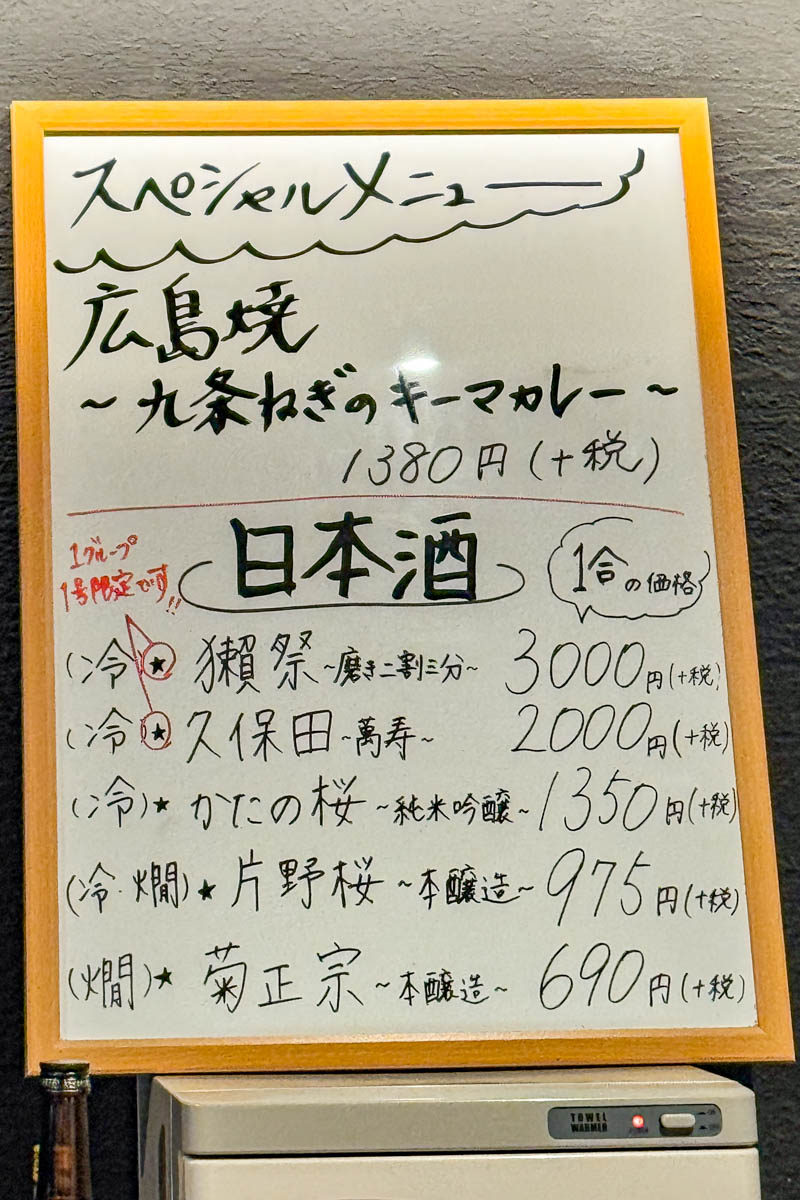 スペシャルメニュー
広島焼
~九条ねぎのキーマカレー~
1380円(+税)
1グループ
1号限定です!!
日本酒
1合の価格
(冷★獺祭~磨き二割三分~ 3000円(+税)
(冷★久保田~萬寿~ 2000円(+税)
(冷)★かたの桜~純米吟醸~ 1350円(+税)
(冷・燗)★片野桜~本醸造~ 975円(+税)
(燗)★菊正宗~本醸造~ 690円(+税)
TOWEL
WARMER